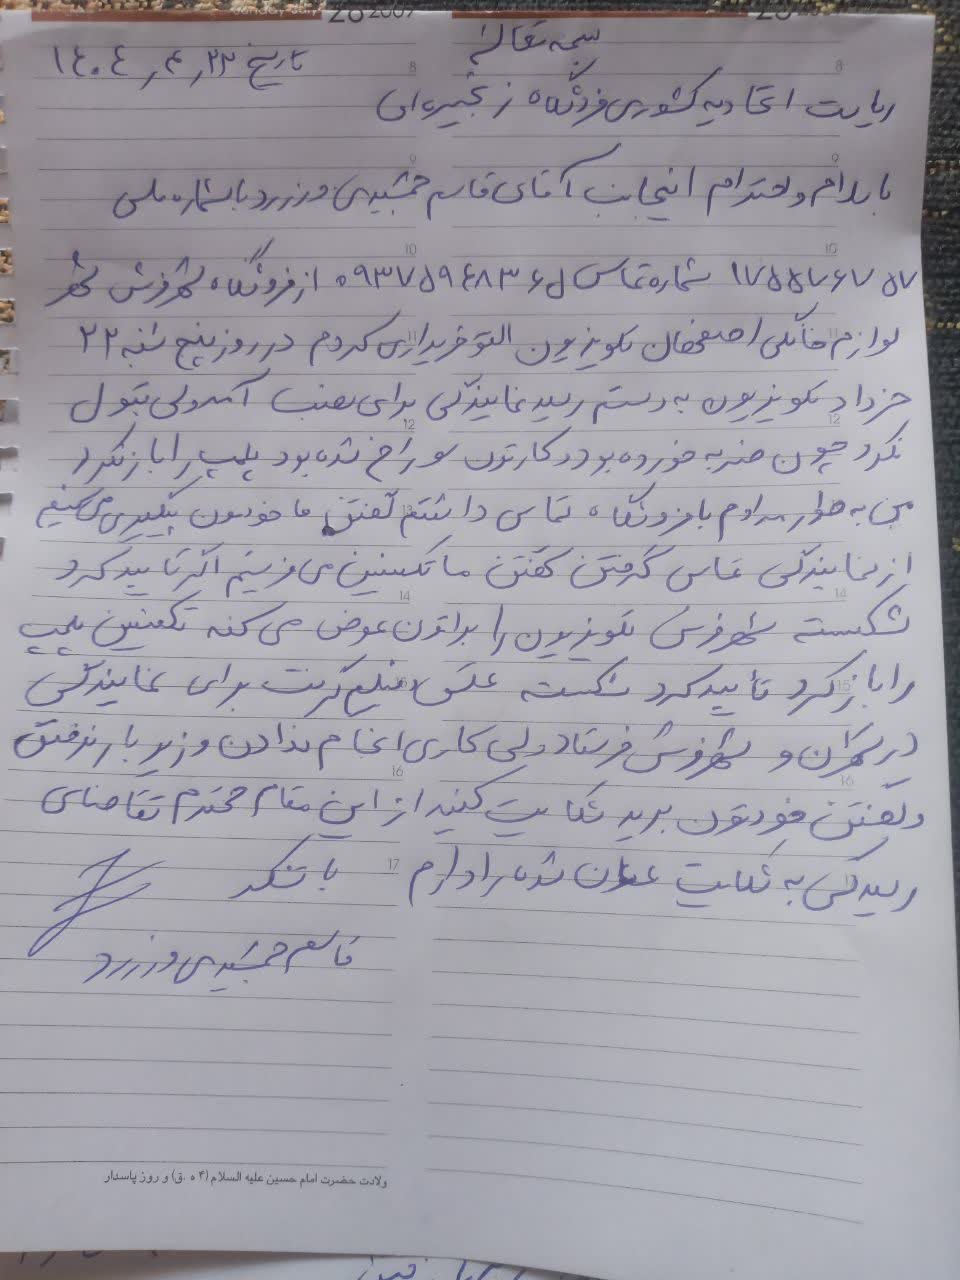 بسمه تعالی
تاریخ ۲۳ ٫ ۴ ٫ ۱۴۰۴
ریاست اتحادیه کشوری فروشگاه زنجیره ای
با سلام و احترام اینجانب آقای قاسم جمشیدی ورزرد با شماره ملی
۱۷۵۵۷۶۷۵۷ شماره تماس ۰۹۳۷۵۹۶۸۳۶۵ از فروشگاه شهر فرش شهر
لوازم خانگی اصفهان تلویزیون النو خریداری کردم در روز پنج شنبه ۲۲
خرداد تلویزیون به دستم رسید نمایندگی برای نصب آمد ولی قبول
نکرد چون ضربه خورده بود و کارتون سوراخ شده بود پلمپ را باز نکرد
من به طور مداوم با فروشگاه تماس داشتم گفتن ما خودمون پیگیری می کنیم
از نمایندگی تماس گرفتن گفتن ما تکنسین می فرستیم اگر تایید کرد
شکسته شهر فرش تلویزیون را براتون عوض می کنه تکنسین پلمپ
را باز کرد تأیید کرد شکسته عکس و فیلم گرفت برای نمایندگی
در تهران و شهر فرش فرستاد ولی کاری انجام ندادن و زیر بار نرفتن
و گفتن خودتون برید شکایت کنید از این مقام محترم تقاضای
رسیدگی به شکایت عنوان شده را دارم
با تشکر
قاسم جمشیدی ورزرد
ولادت حضرت امام حسین علیه السلام (۴ ه .ق) و روز پاسدار